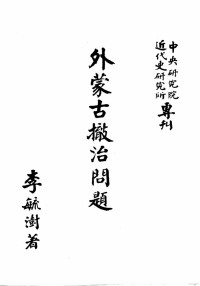 中央研究院
近代史研究所
專刊
外蒙古撤治問題
李毓澍著